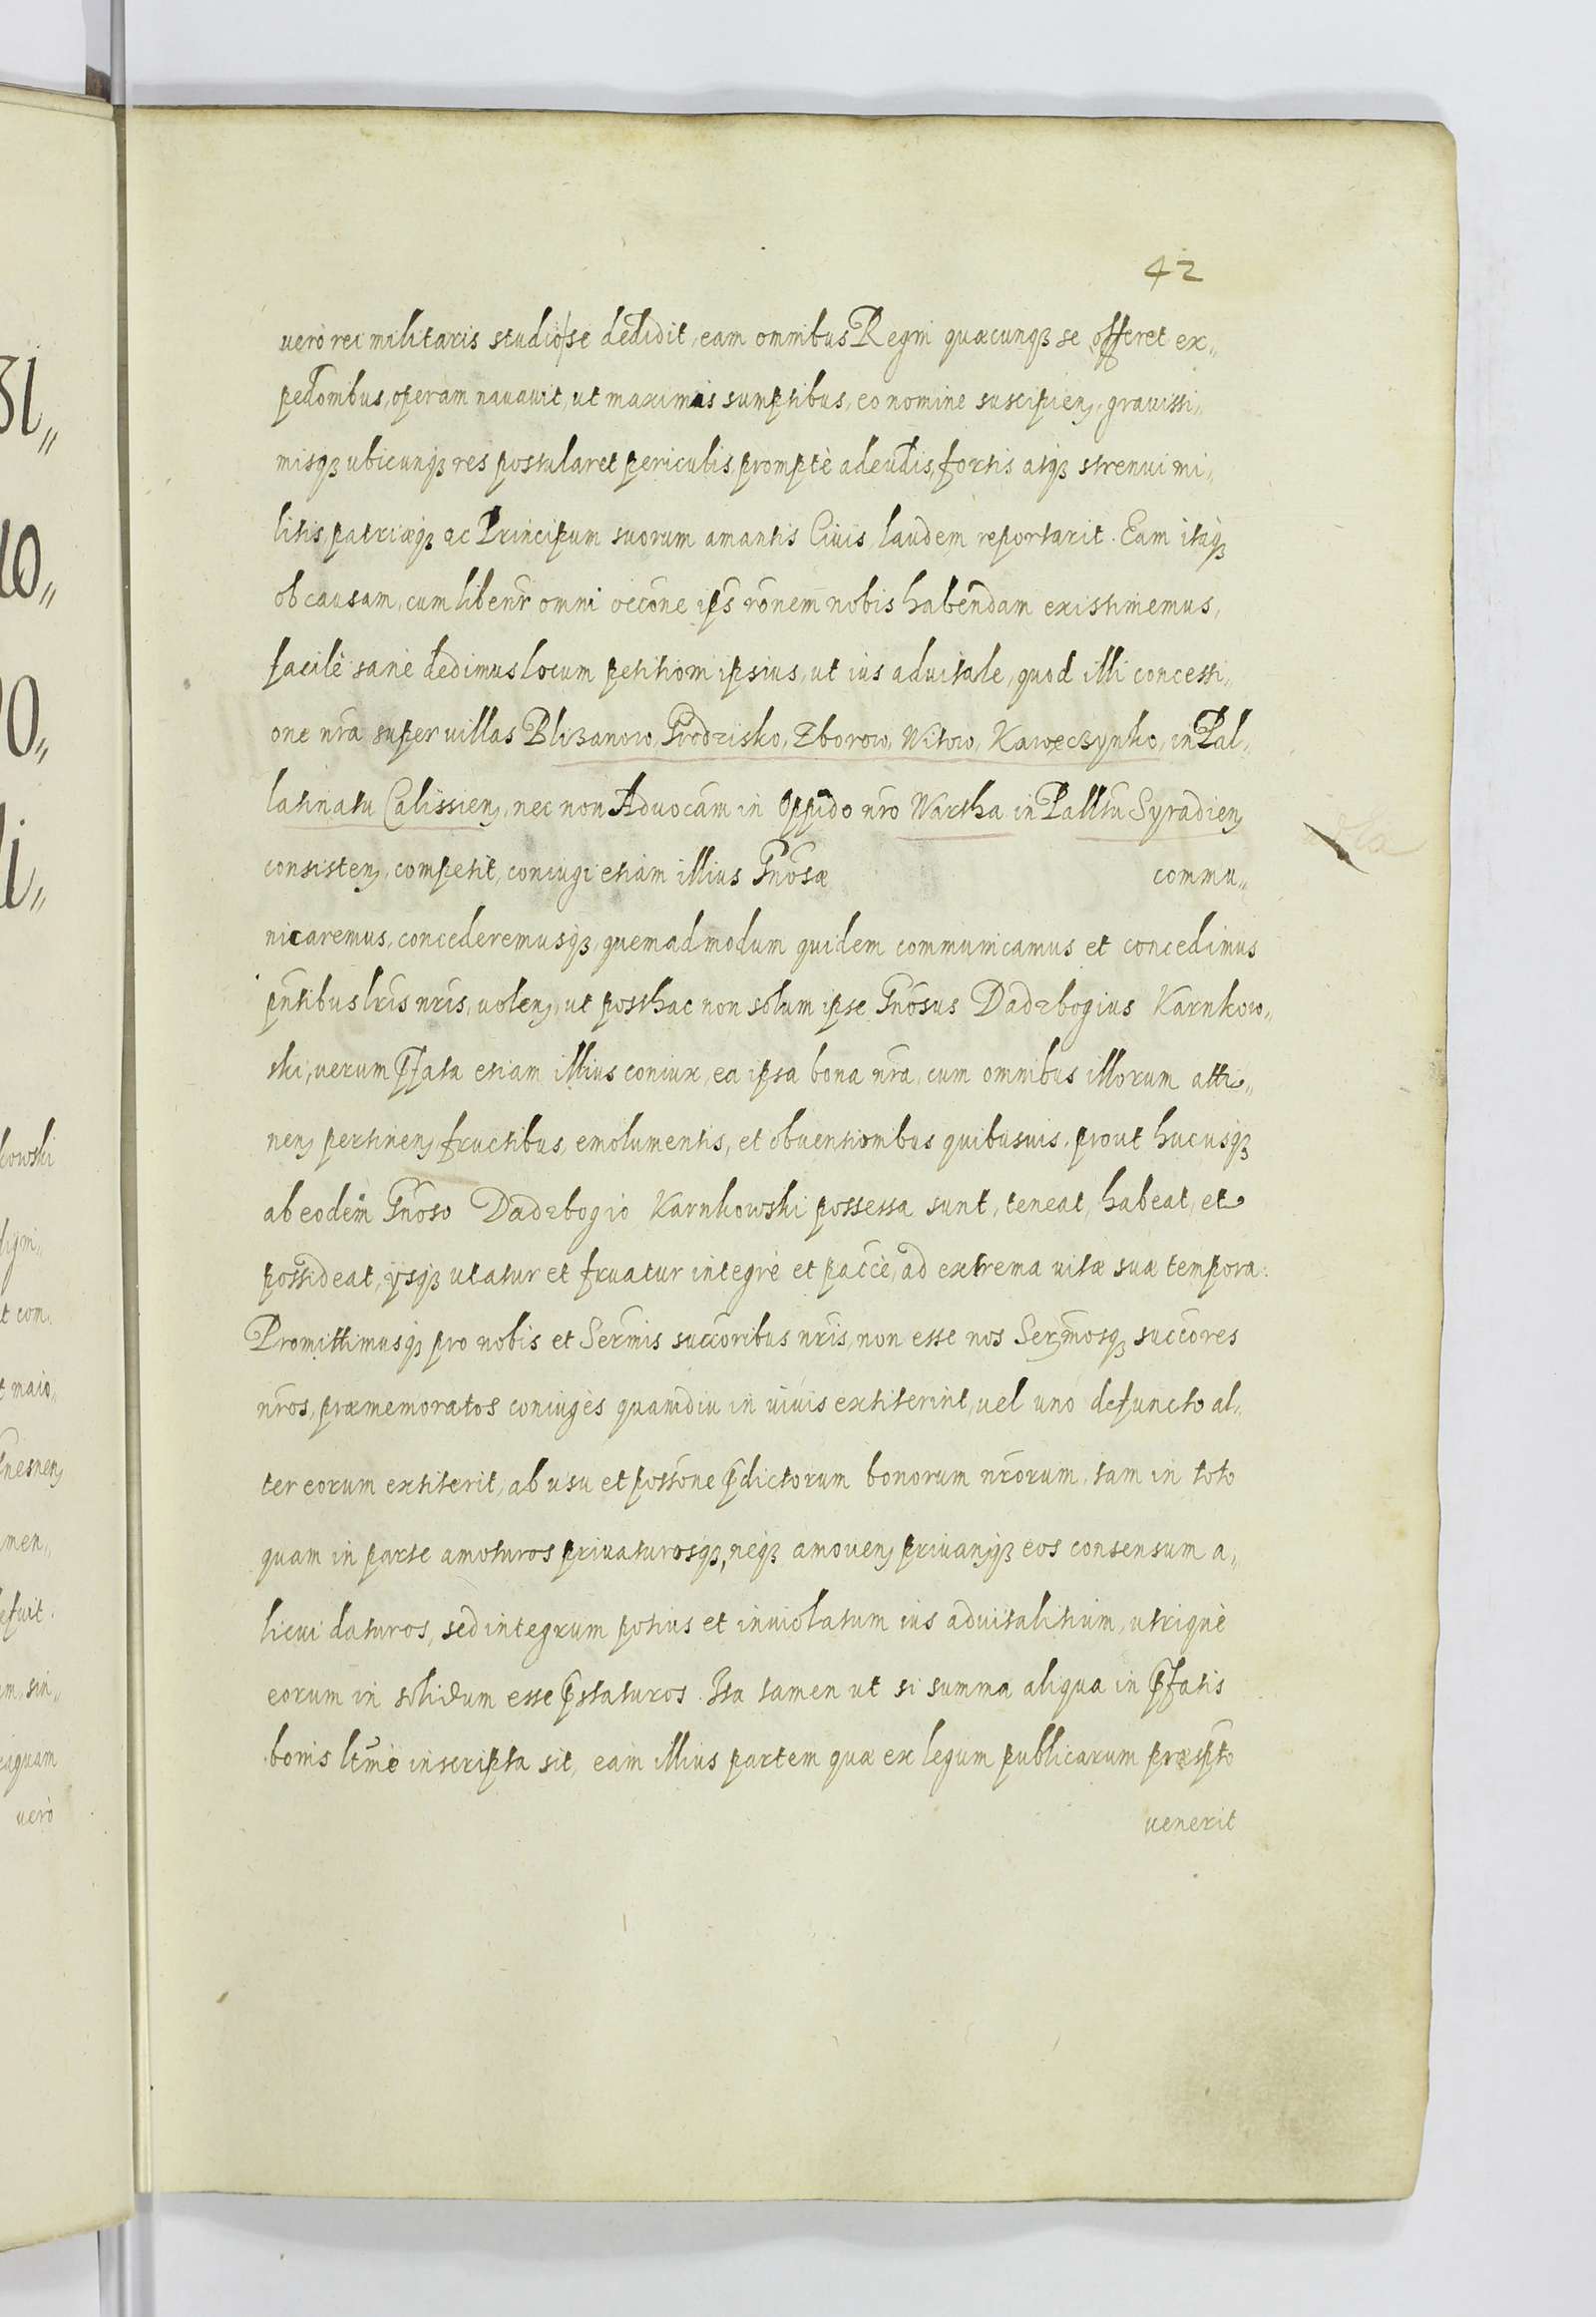 42
vero rei militaris studio se dedidit, eam omnibus Regni quacunqꝫ se offeret ex„
pedo͞nibus, operam navavit, ut maximis sumptibus, eo nomine suscipienꝭ, gravissi„
misqꝫ ubicunqꝫ res postularet periculis promptè adeudis, fortis atqꝫ strenui mi„
litis, patriæqꝫ ac Principum suorum amantis Civis, laudem reportarit. Eam itaqꝫ
ob causam, cum liben͞r omni occ͞one ips͞ ro͞nem nobis habendam existimemus,
facilè sanè dedimus locum petitioni ipsius, ut ius advitale, quod illi concessi„
one nr͞a super villas Blizanow, Grodzisko, Zborow, Witow, Kawęczynko, in Pal„
latinatu Calissienꝭ, nec non Advoca͞m in Oppido nr͞o Wartha in Pall͞tu Syradienꝭ
consistenꝭ, competit, coniugi etiam illius Gn͞osæ commu„
nicaremus, concederemusqꝫ, quemadmodum quidem communicamus et concedimus
pn͞tibus lr͞is nr͞is, volenꝭ, ut posthac non solum ipse Gn͞osus Dadzbogius Karnkow„
ski, verum p͞fata etiam illius coniux, ea ipsa bona nr͞a, cum omnibus illorum atti„
nenꝭ pertinenꝭ fructibus, emolumentis, et obventionibus quibusvis, prout hucusqꝫ
ab eodem Gn͞oso Dadzbogio Karnkowski possessa sunt, teneat, habeat, et
possideat, ijsqꝫ utatur et fruatur integrè et pac͞cè, ad extrema vitæ suæ tempora.
Promittimusqꝫ pro nobis et Ser͞mis succ͞oribus nr͞is, non esse nos Ser͞mosqꝫ succ͞ores
nr͞os, præmemoratos coniuges quamdiu in vivis extiterint, vel uno defuncto al„
ter eorum extiterit, ab usu et poss͞one p͞dictorum bonorum nr͞orum, tam in toto
quam in parte amoturos privaturosqꝫ, neqꝫ amovenꝭ privanꝭqꝫ eos consensum a„
licui daturos, sed integrum potius et inviolatum ius advitalitium, utriquè
eorum in solidum esse p͞staturos. Ita tamen ut si summa aliqua in p͞fatis
bonis lt͞mè inscripta sit, eam illius partem quæ ex legum publicarum præsp͞to
venerit